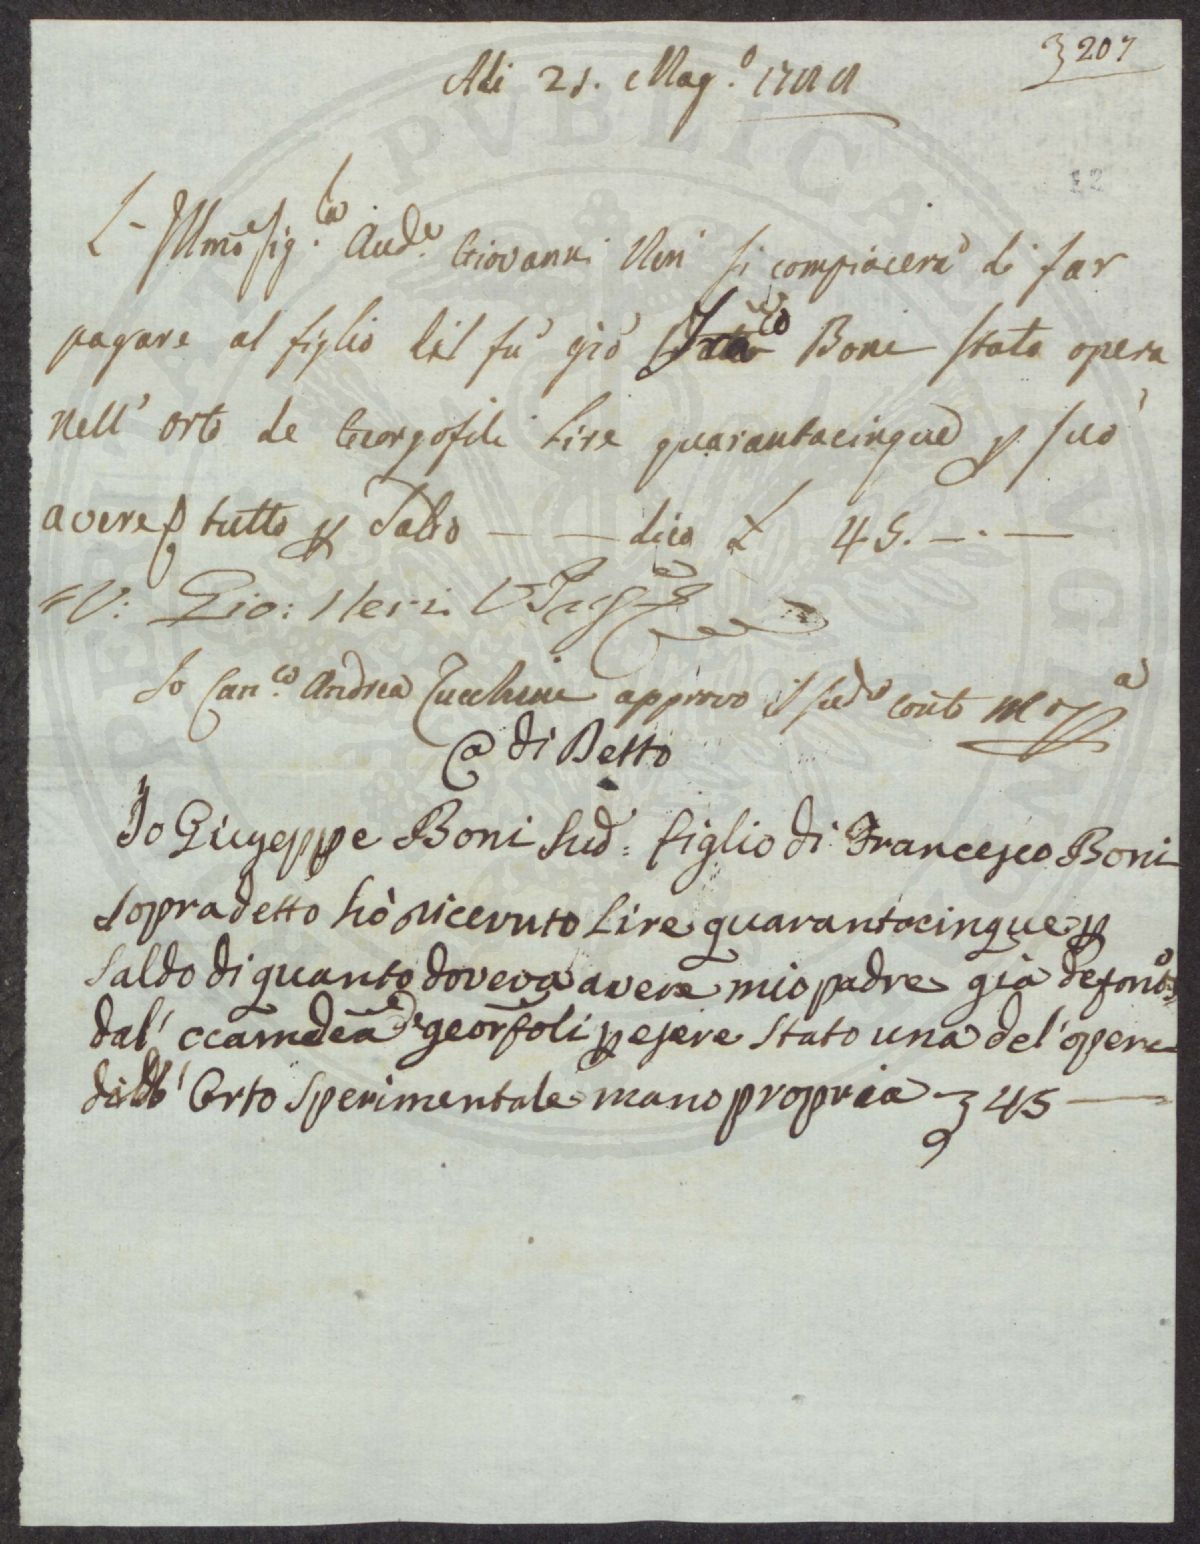 207
Adi 21. Mag.o 1788
L' Illmo Sig.re Aud.e Giovanni Neri si compiacerà di far
pagare al figlio del fù già Fra.co Boni stato opera
nell' orto de Georgofili Lire quarantacinque p suo
avere p tutto p saldo — — dico £ 45. — . —
V: Gio: Neri
Io Can.co Andrea Zucchini approvo il sud.o conto
@ di Detto
Io Giuseppe Boni sud: figlio di Francesco Boni
sopradetto hò ricevuto Lire quarantacinque p
saldo di quanto doveva avere mio padre già defonto
dal' ccamdea de georfoli p esere stato una del' opere
Orto sperimentale mano propria 45 —